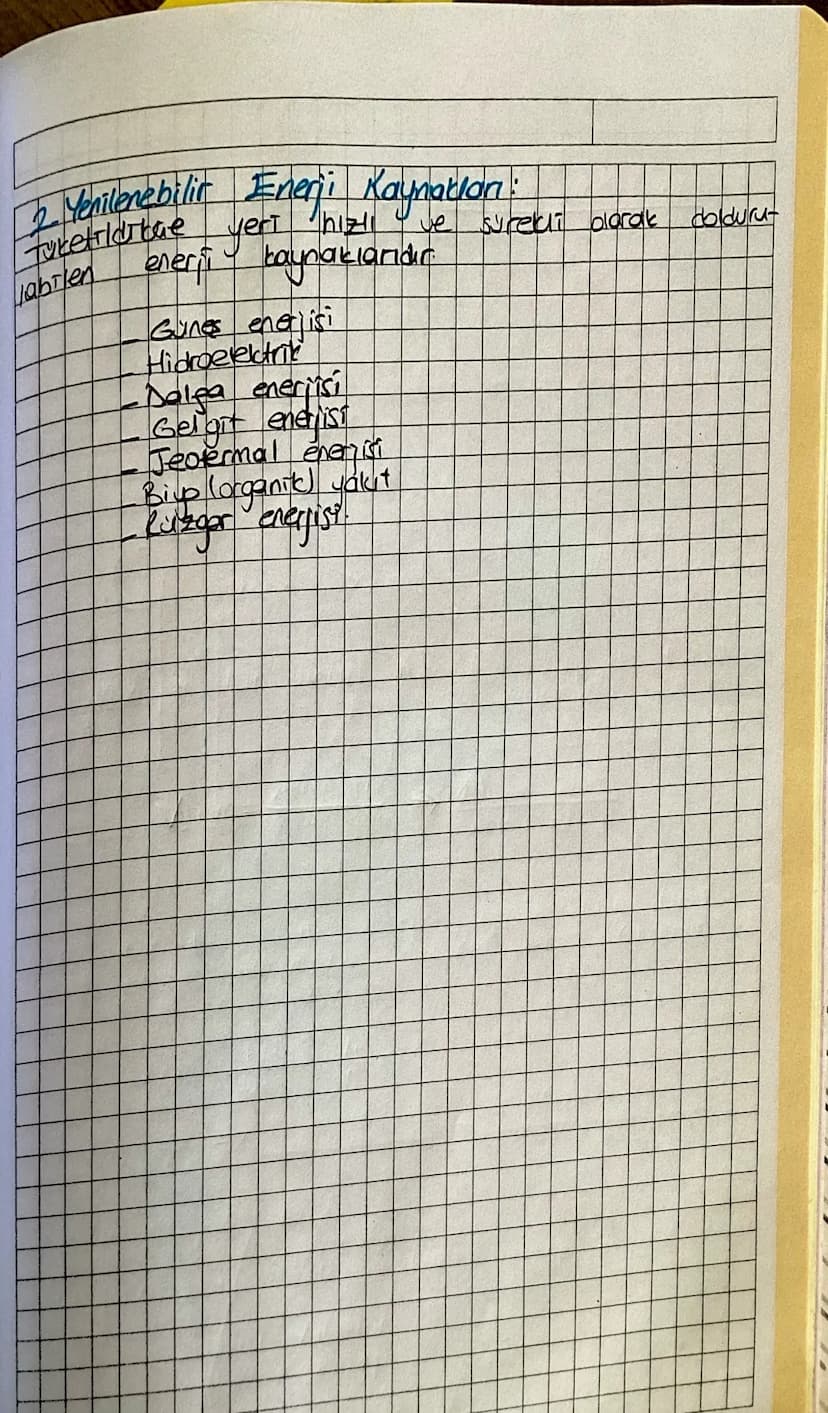 2. Yenilenebilir Enerji Kaynakları:
Tüketildikçe yeri hızlı ve sürekli olarak dolduru-
labilen enerji kaynaklarıdır.
- Güneş enerjisi
- Hidroelektrik
- Dalga enerjisi
- Gelgit enerjisi
- Jeotermal enerjisi
Biyo(organik) yakıt
- Rüzgar enerjisi.